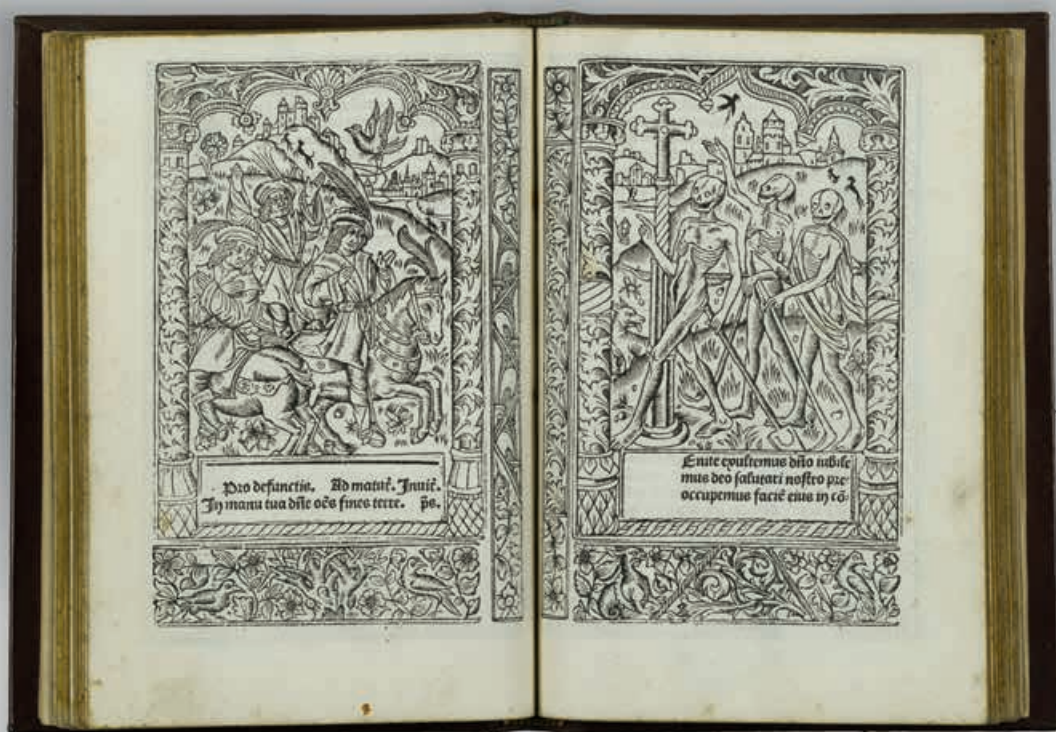 Pro defunctis. Ad matut̄. Inuit̄.
In manu tua dn̄e oēs fines terre. ps̄.
Enite exultemus dn̄o iubile
mus deo salutari nostro pre⸗
occupemus faciē eius in cō⸗